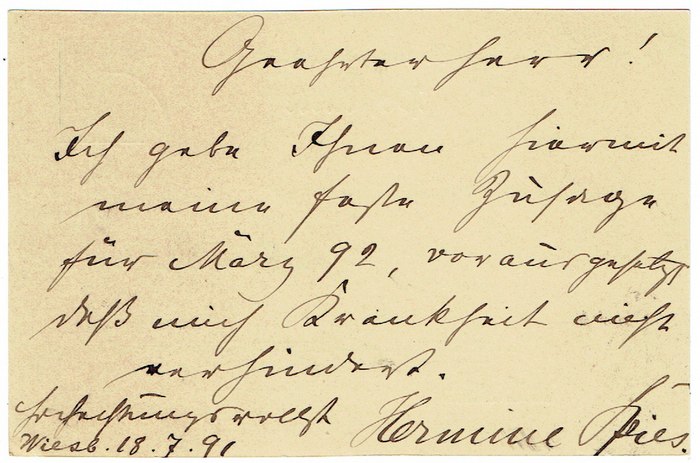 Geehrter Herr!
Ich gebe Ihnen hiermit
meine feste Zusage
für März 92, vorausgesetzt
daß mich Krankheit nicht
verhindert.
Hochachtungsvollst
Hermine Spies.
Wiesb. 18.7.91